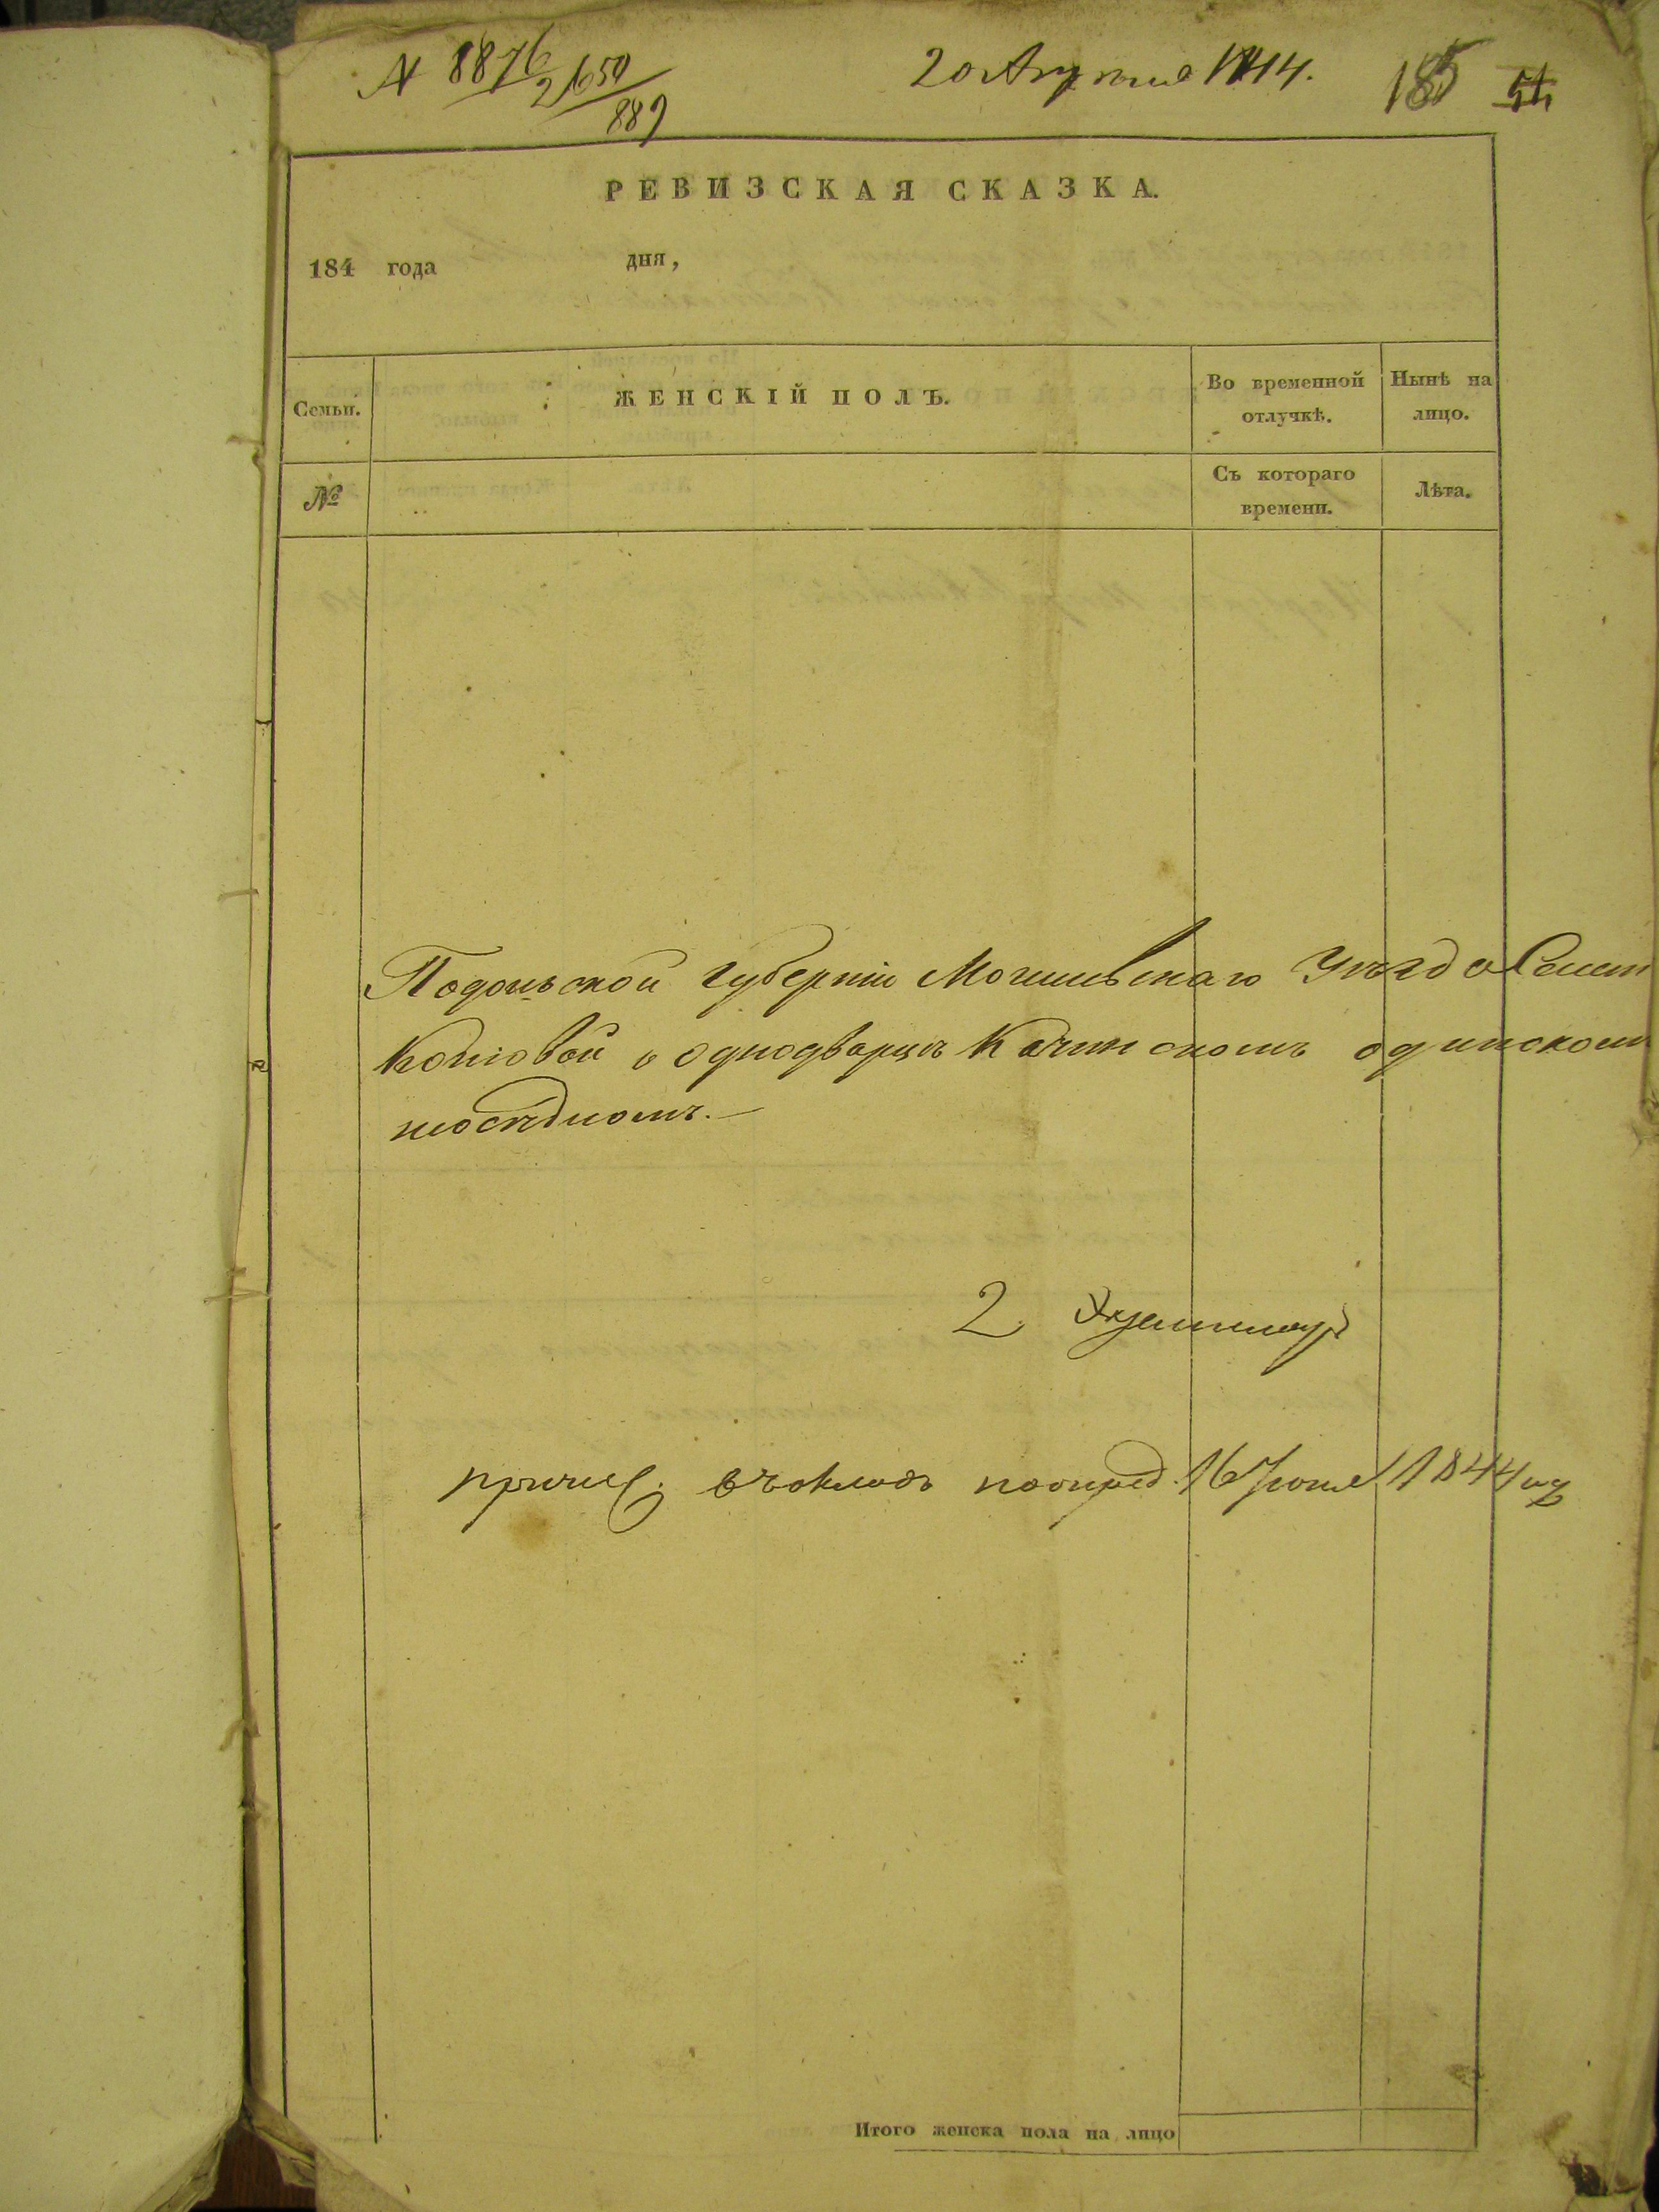 № 8876
21650
889
20 Августа 1844.
185 54
РЕВИЗСКАЯ СКАЗКА.
184 года дня,
Семьи.
ЖЕНСКІЙ ПОЛЪ.
Во временной отлучкѣ.
Нынѣ на лицо.
№
Съ котораго времени.
Лѣта.
Подольской Губерніи Могилевскаго Уѣзда
о однодворцѣ
2
причис. въ окладъ по опред. 16 Іюня 1844 г.
Итого женска пола на лицо